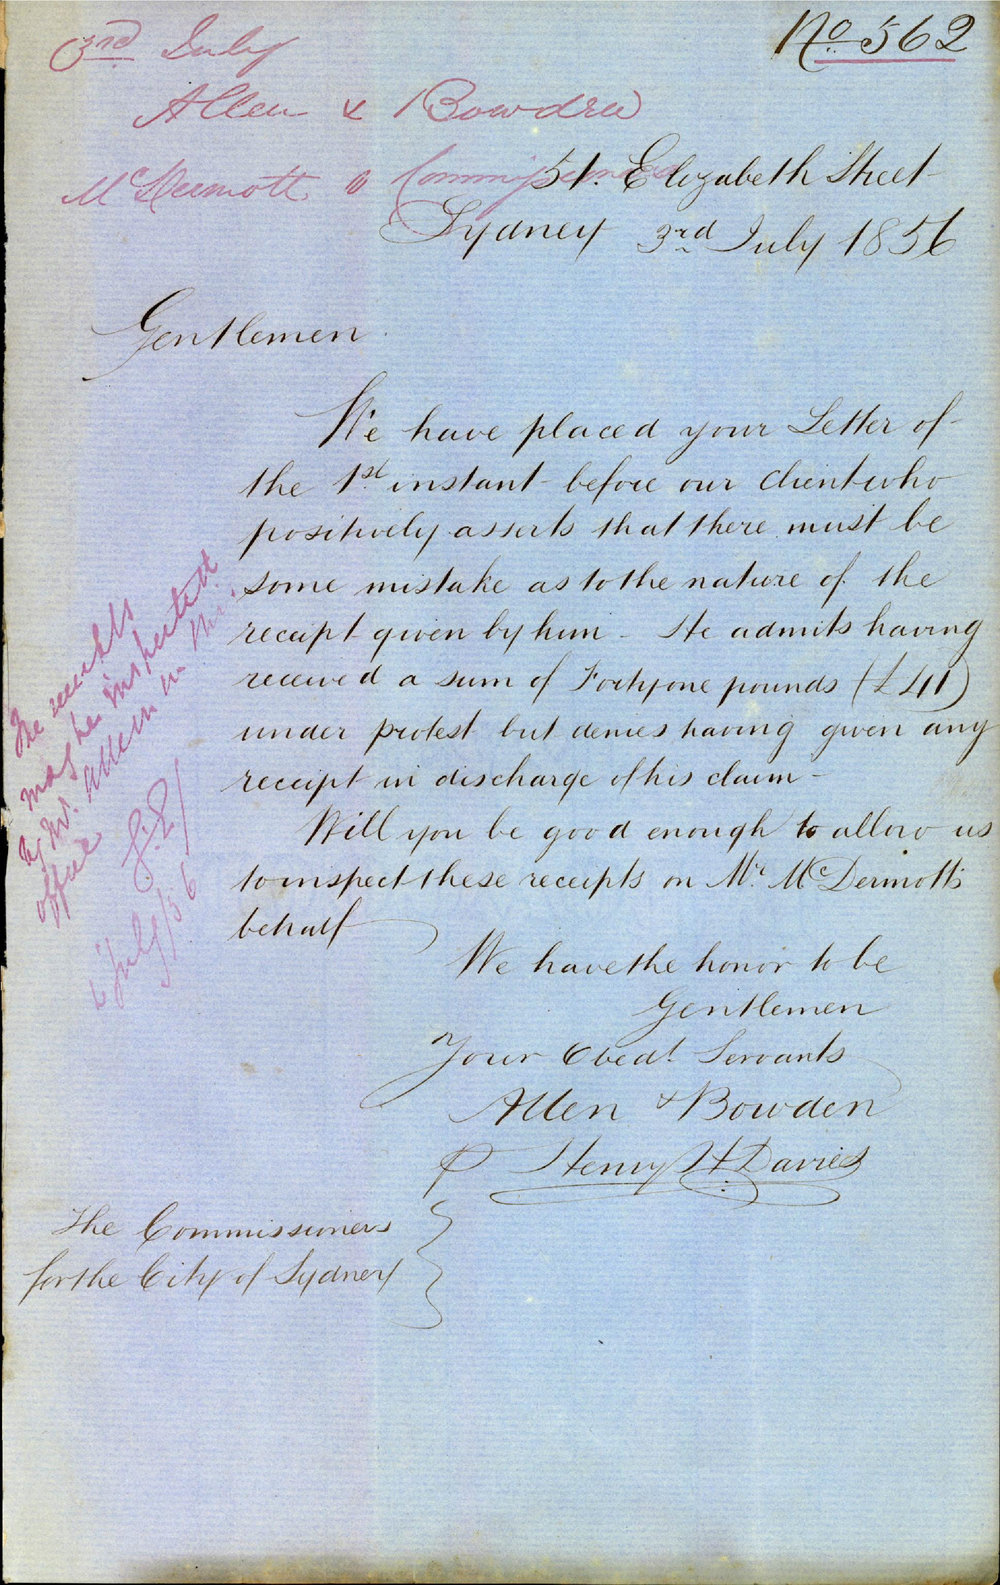 No 562
3rd July
Allen & Bowden
McDermott v Commissioners
51. Elizabeth Street
Sydney 3rd July 1856
Gentlemen
We have placed your Letter of
the 1st instant before our Client who
positively asserts that there must be
some mistake as to the nature of the
receipt given by him - He admits having
received a sum of Forty one pounds (£41)
under protest but denies having given any
receipt in discharge of his claim -
Will you be good enough to allow us
to inspect these receipts on Mr. McDermott's
behalf
We have the honor to be
Gentlemen
Your Obedt. Servants
Allen & Bowden
p Henry H. Davies
The Commissioners
for the City of Sydney
The receipts
may be inspected
by Mr. Allen in this
office
July/56